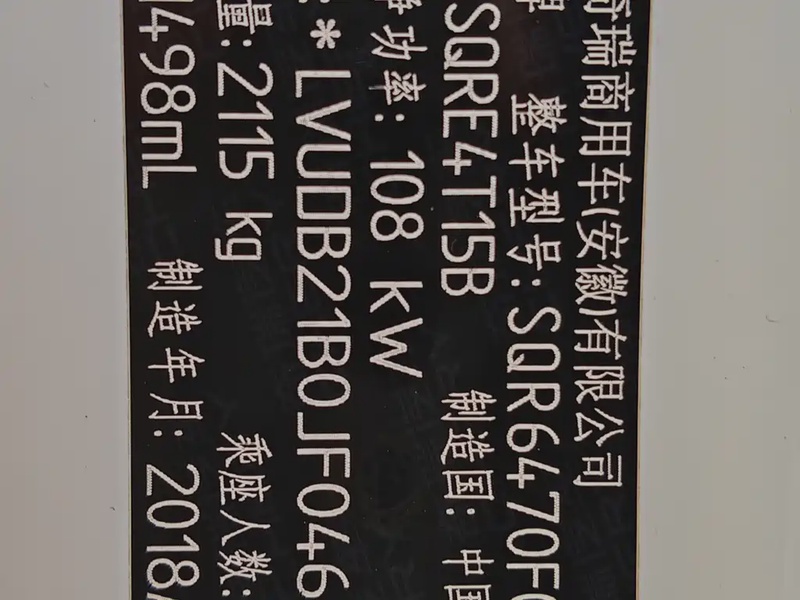 奇瑞商用车(安徽)有限公司
牌 整车型号: SQR6470F
SQRE4T15B 制造国: 中国
净功率: 108 kW
: * LVUDB21B0JF046
量: 2115 kg 乘座人数:
1498mL 制造年月: 2018